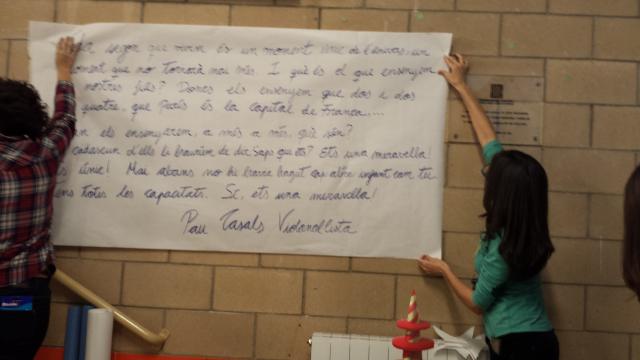 segon que vivim és un moment únic de l'univers, un
moment que no tornarà mai més. I què és el que ensenyem
nostres fills? Doncs els ensenyem que dos i dos
quatre, que París és la capital de França...
els ensenyarem, a més a més, què són?
cadascun d'ells li hauríem de dir: Saps que ets? Ets una meravella!
únic! Mai abans no hi havia hagut cap altre infant com tu
totes les capacitats. Sí, ets una meravella!
Pau Casals Violoncel·lista